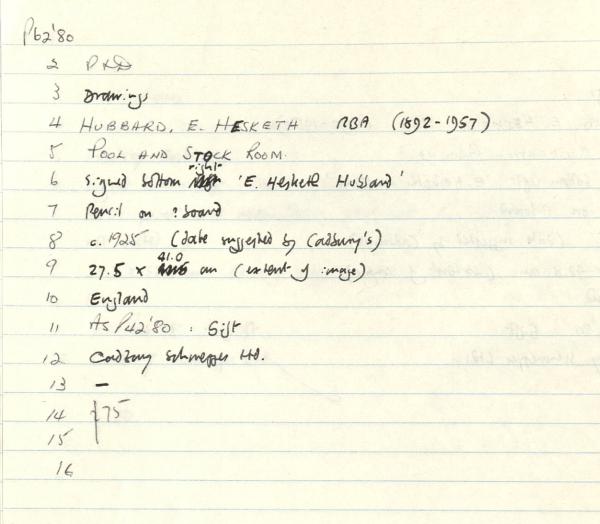 P62'80
2 P&D
3 Drawings
4 HUBBARD, E. HESKETH RBA (1892-1957)
5 POOL AND STOCK ROOM.
6 Signed bottom right 'E. Hesketh Hubbard'
7 Pencil on ? board
8 c. 1925 (date suggested by Cadbury's)
9 27.5 x 41.0 cm (extent of image)
10 England
11 AS P42'80 : Gift
12 Cadbury Schweppes Ltd.
13 –
14 £75
15
16